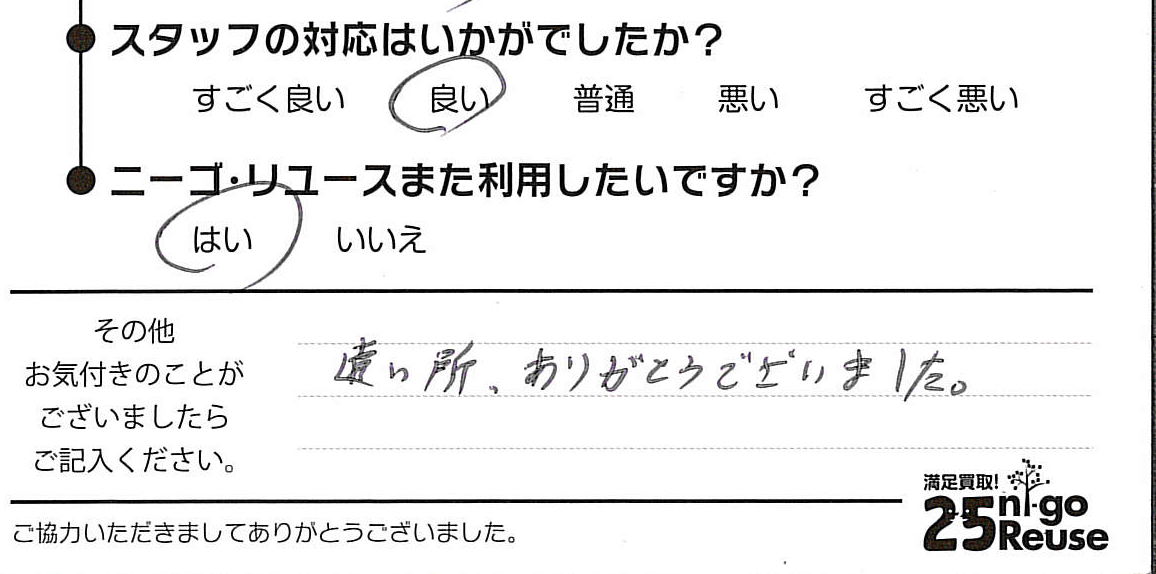 スタッフの対応はいかがでしたか？
すごく良い 良い 普通 悪い すごく悪い
ニーゴ・リユースまた利用したいですか？
はい いいえ
その他
お気付きのことが
ございましたら
ご記入ください。
遠い所、ありがとうございました。
満足買取！
25 ni-go
Reuse
ご協力いただきましてありがとうございました。